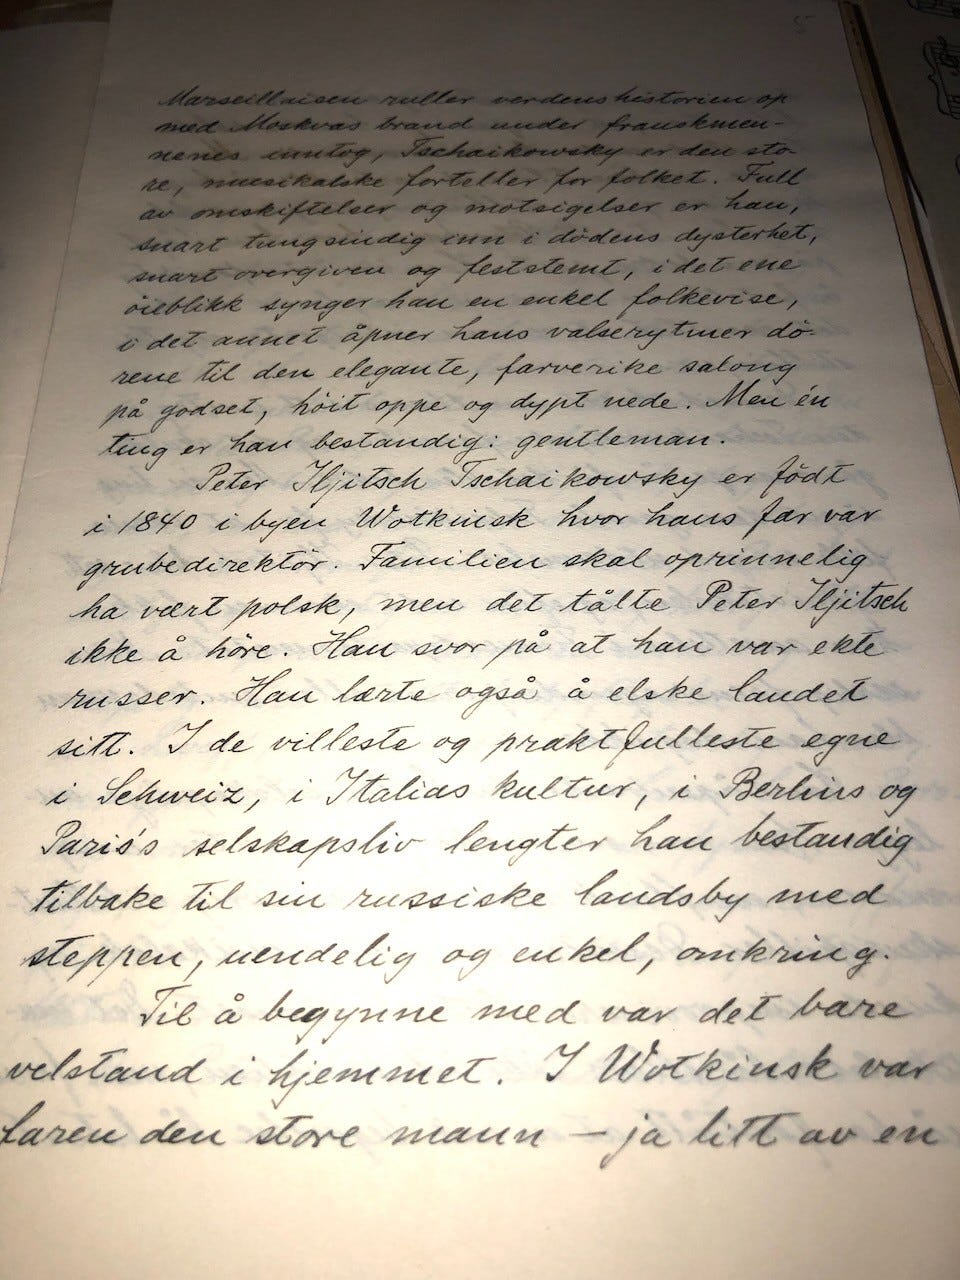 5
Marseillaisen ruller verdenshistorien op
med Moskvas brand under franskmen-
nenes inntog, Tschaikowsky er den sto-
re, musikalske forteller for folket. Full
av omskiftelser og motsigelser er han,
snart tungsindig inn i dödens dysterhet,
snart overgiven og feststemt, i det ene
öieblikk synger han en enkel folkevise,
i det annet åpner hans valserytmer dö-
rene til den elegante, farverike salong
på godset, höit oppe og dypt nede. Men én
ting er han bestandig: gentleman.
Peter Iljitsch Tschaikowsky er födt
i 1840 i byen Wotkinsk hvor hans far var
grubedirektör. Familien skal oprinnelig
ha vært polsk, men det tålte Peter Iljitsch
ikke å höre. Han svor på at han var ekte
russer. Han lærte også å elske landet
sitt. I de villeste og praktfulleste egne
i Schweiz, i Italias kultur, i Berlins og
Paris's selskapsliv lengter han bestandig
tilbake til sin russiske landsby med
steppen, uendelig og enkel, omkring.
Til å begynne med var det bare
velstand i hjemmet. I Wotkinsk var
faren den store mann – ja litt av en